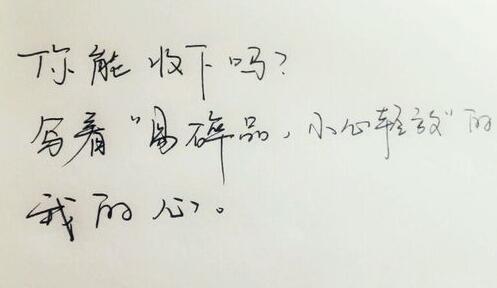 你能收下吗?
写着“易碎品，小心轻放”的
我的心。